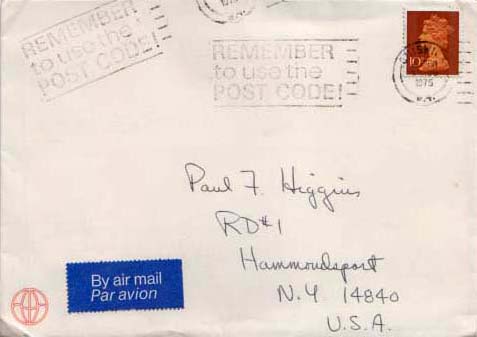 REMEMBER
to use the
POST CODE!
REMEMBER
to use the
POST CODE!
1975
10P
Paul F. Higgins
RD#1
Hammondsport
N.Y. 14840
U.S.A.
By air mail
Par avion